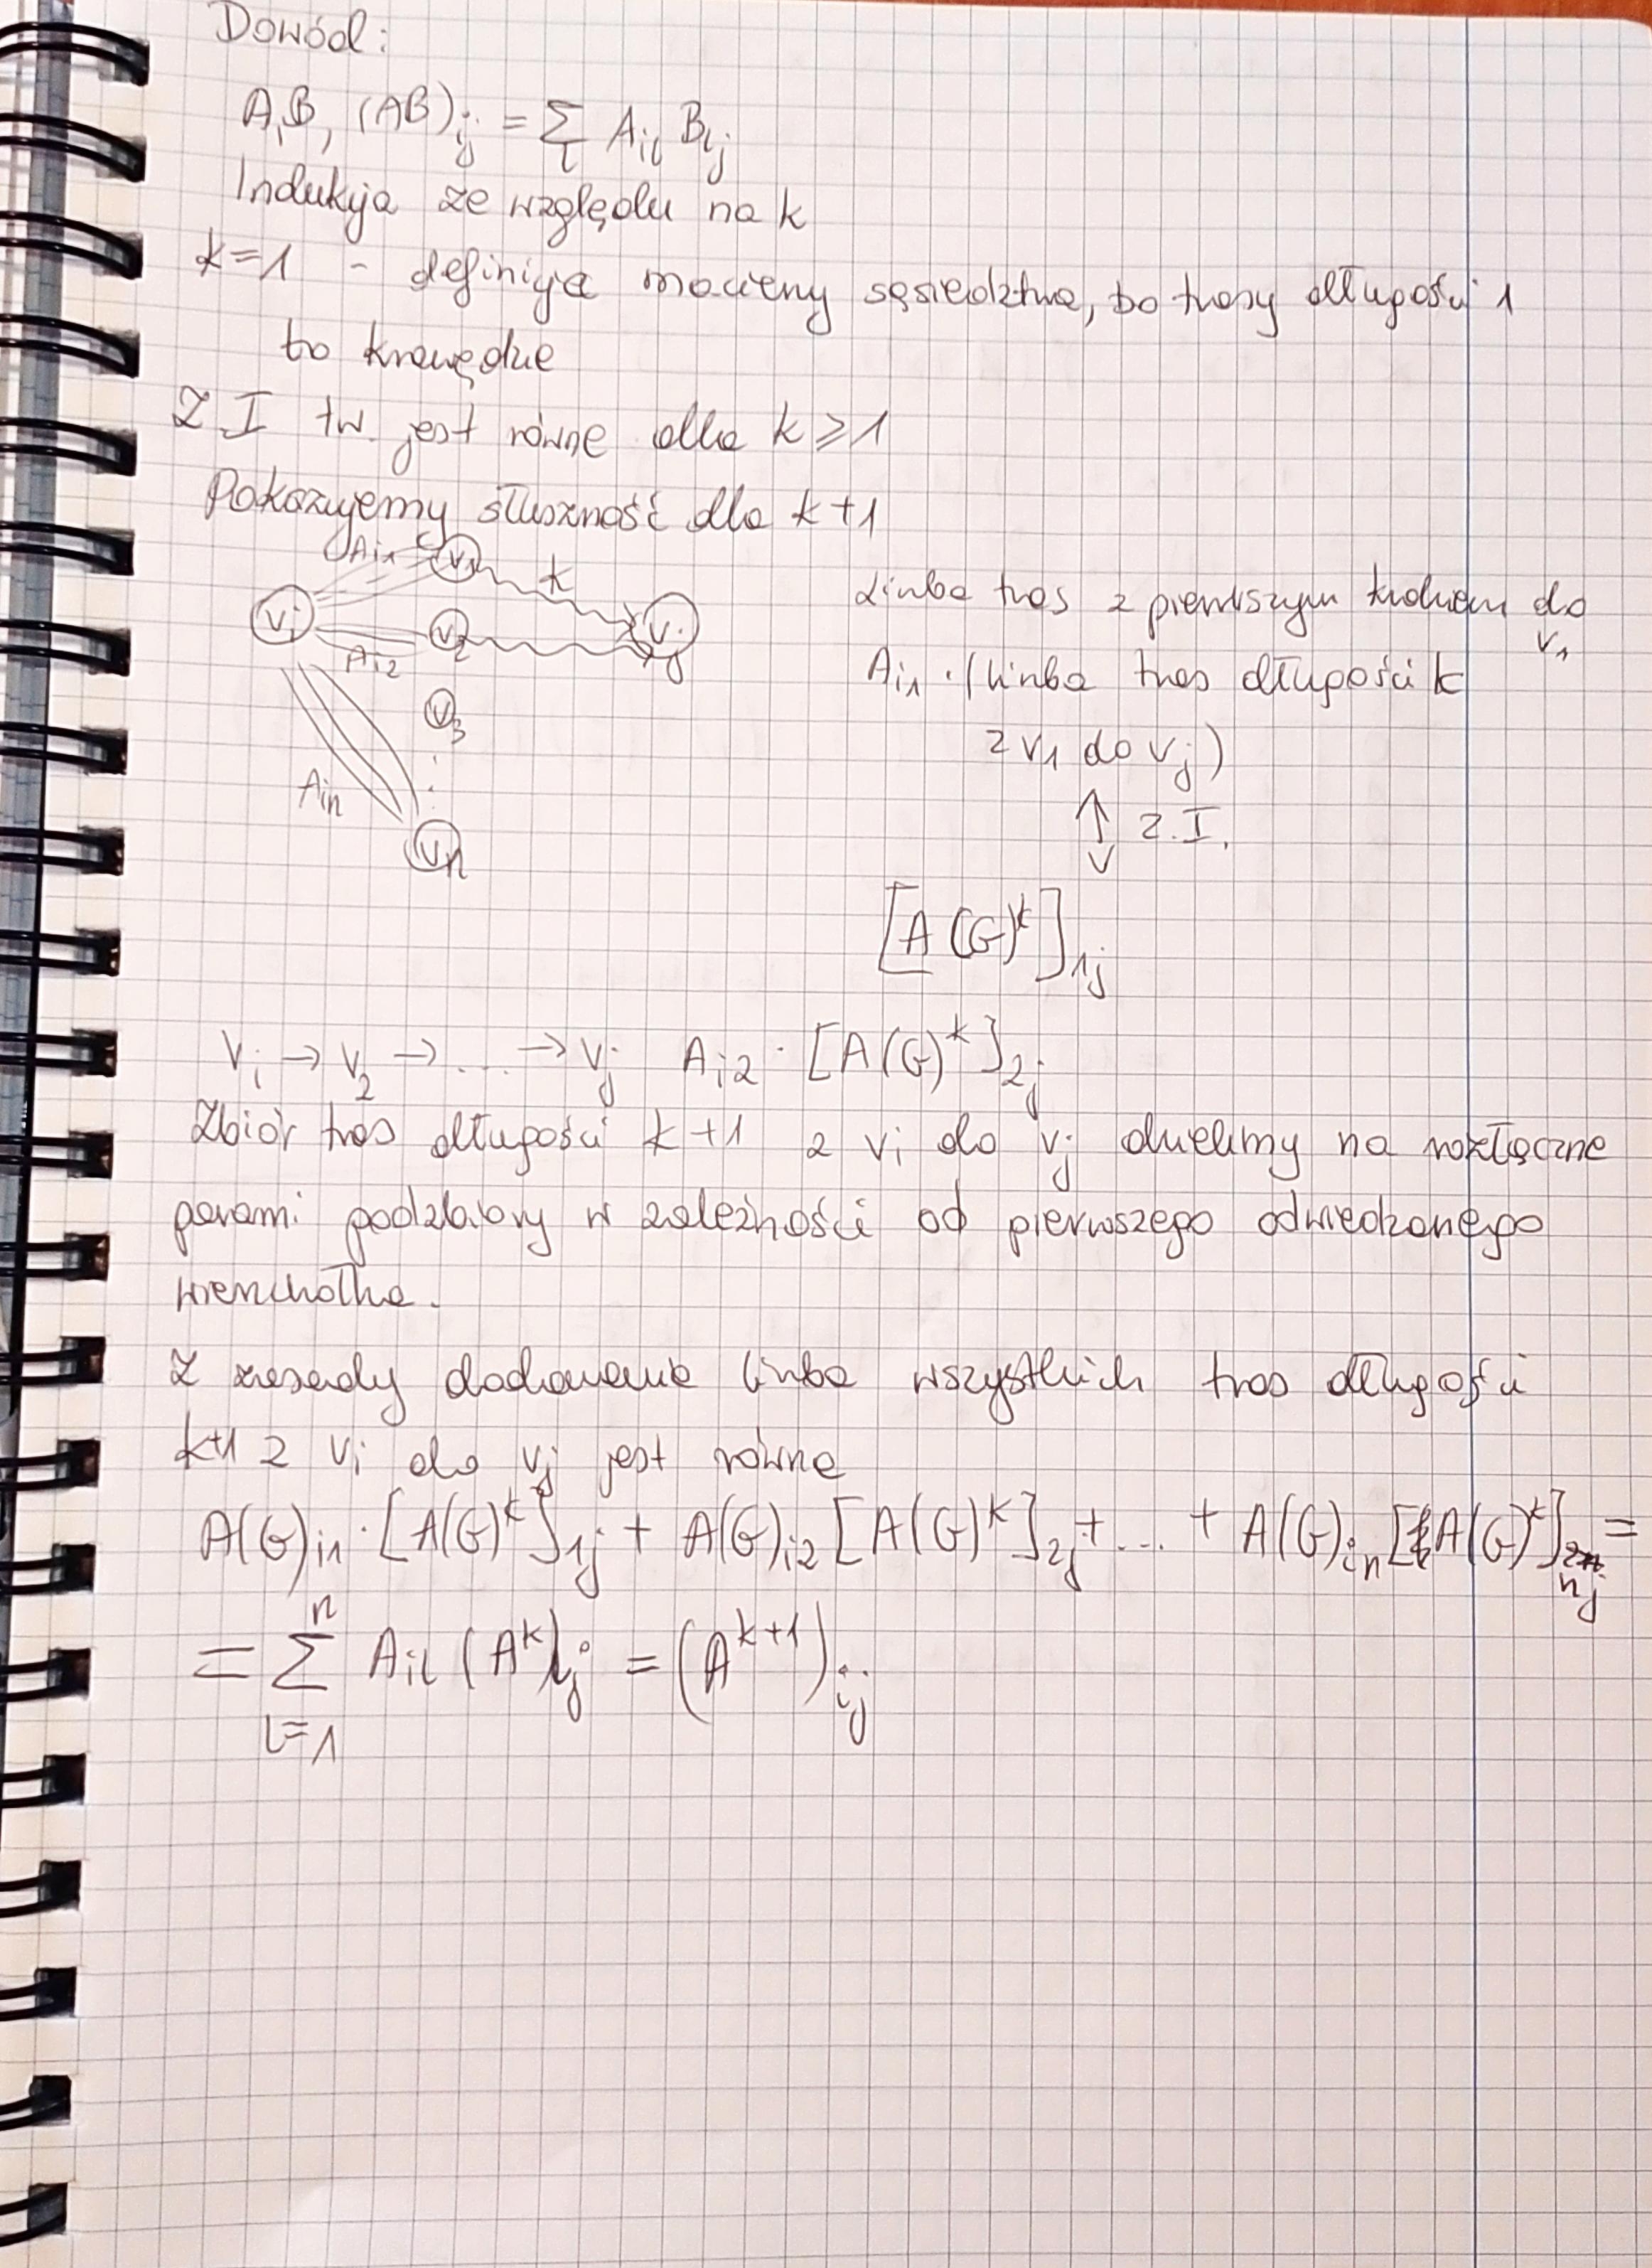 Dowód:
A,B, (AB)ij = ∑l Ail Blj
Indukcja ze względu na k
k=1 - definicja macierzy sąsiedztwa, bo trasy długości 1
to krawędzie
Z.I tw. jest równe dla k ⩾ 1
Pokazujemy słuszność dla k+1
Ai1 v1 k
vi v2 vj
Ai2
v3
Ain
vn
Liczba tras z pierwszym krokiem do
v1
Ai1 · (liczba tras długości k
z v1 do vj)
↕ Z.I.
[A(G)^k]1j
vi → v2 → ... → vj Ai2 · [A(G)^k]2j
Zbiór tras długości k+1 z vi do vj dzielimy na rozłączne
parami podzbiory w zależności od pierwszego odwiedzonego
wierzchołka.
Z zasady dodawania liczba wszystkich tras długości
k+1 z vi do vj jest równa
A(G)i1 · [A(G)^k]1j + A(G)i2 [A(G)^k]2j + ... + A(G)in [A(G)^k]nj =
= ∑_{l=1}^{n} Ail (A^k)lj = (A^{k+1})ij